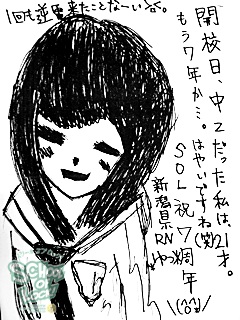 1回も逆電来たことなーいぞ。
開校日、中2だった私は、21才。
もう7年か…。
はやいですね(笑)
SOL祝7周年\(^o^)/
新潟県RN